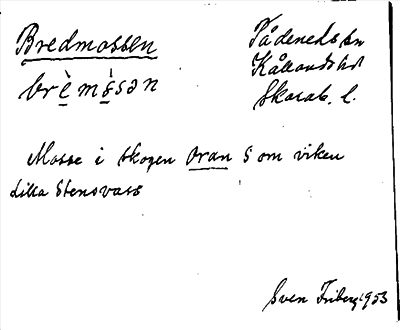 Bredmossen
brè mósən
Tådeneds sn
Kållands hd
Skarab. l.
Mosse i skogen Oran S om viken
Lilla Stensvass
Sven Friberg 1953